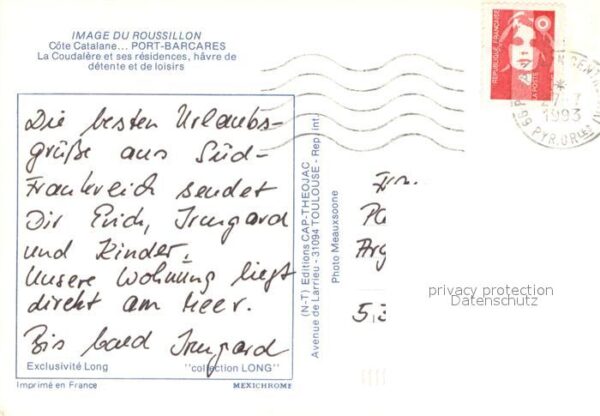 IMAGE DU ROUSSILLON
Côte Catalane... PORT-BARCARES
La Coudalère et ses résidences, hâvre de
détente et de loisirs
Die besten Urlaubs-
grüße aus Süd-
Frankreich sendet
Dir Erich, Irmgard
und Kinder.
Unsere Wohnung liegt
direkt am Meer.
Bis bald Irmgard
Exclusivité Long
"collection LONG"
Imprimé en France
MEXICHROME
(N-T) Editions CAP-THEOJAC
Avenue de Larrieu - 31094 TOULOUSE - Rep. int.
Photo Meauxsoone
REPUBLIQUE FRANÇAISE
LA POSTE
1993
66 PYR.ORles
Frn.
privacy protection
Datenschutz